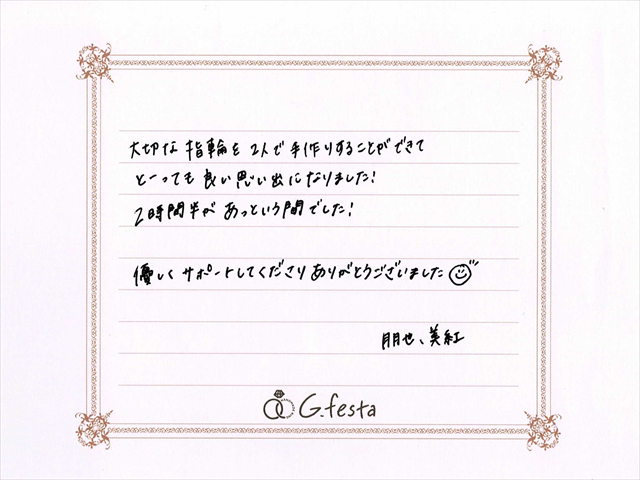 大切な指輪を2人で手作りすることができて
とーっても良い思い出になりました!
2時間半があっという間でした!
優しくサポートしてくださりありがとうございました
朋也、美紅
G.festa